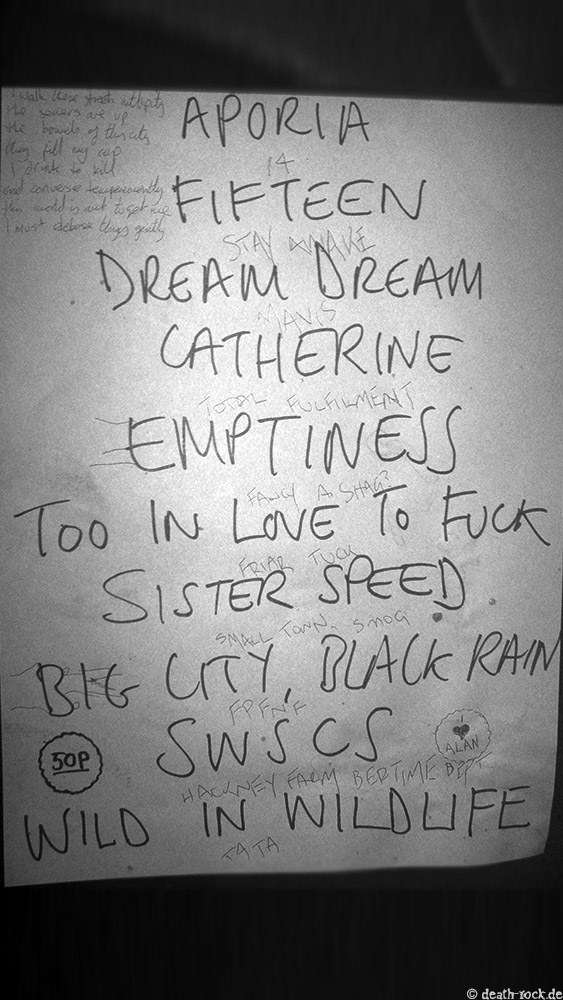 I walk these streets
the sewers are up
the bowels of this city
they fill my cup
I drink to kill
and converse
this world is out to get me
I must debase things gently
APORIA
14
FIFTEEN
STAY AWAKE
DREAM DREAM
MAVIS
CATHERINE
TOTAL FULFILMENT
EMPTINESS
FANCY A SHAG?
TOO IN LOVE TO FUCK
FRIAR TUCK
SISTER SPEED
SMALL TOWN, SMOG
BIG CITY, BLACK RAIN
FPFNF
SWSCS
50P
I ♥ ALAN
HACKNEY FARM BEDTIME DEPT
WILD IN WILDLIFE
TATA
© death-rock.de